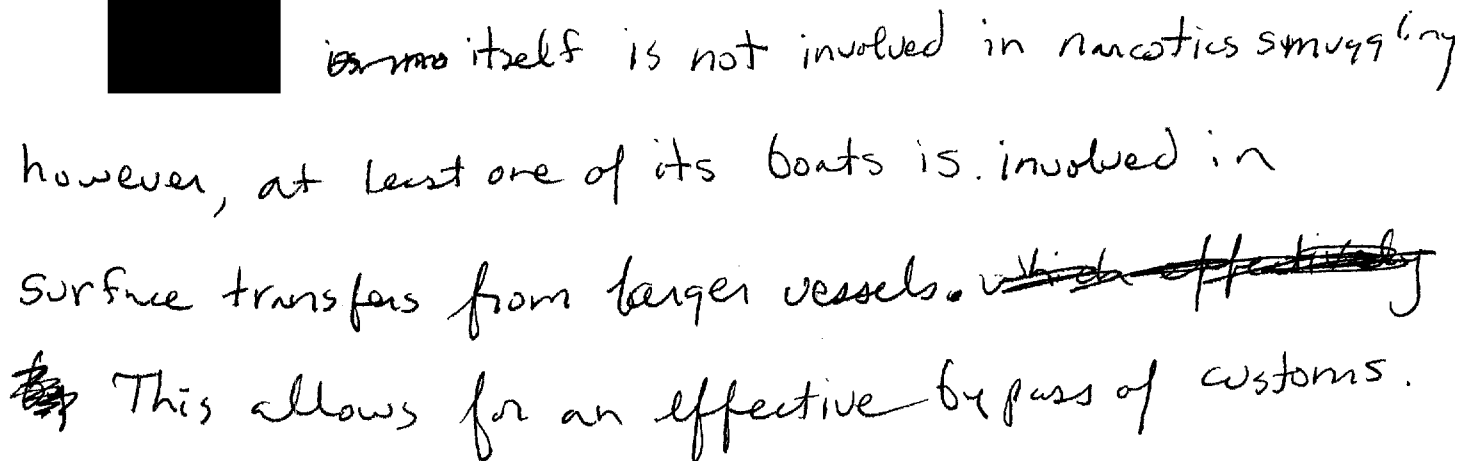 itself is not involved in narcotics smuggling
however, at least one of its boats is involved in
surface transfers from larger vessels. which effectively
This allows for an effective bypass of customs.